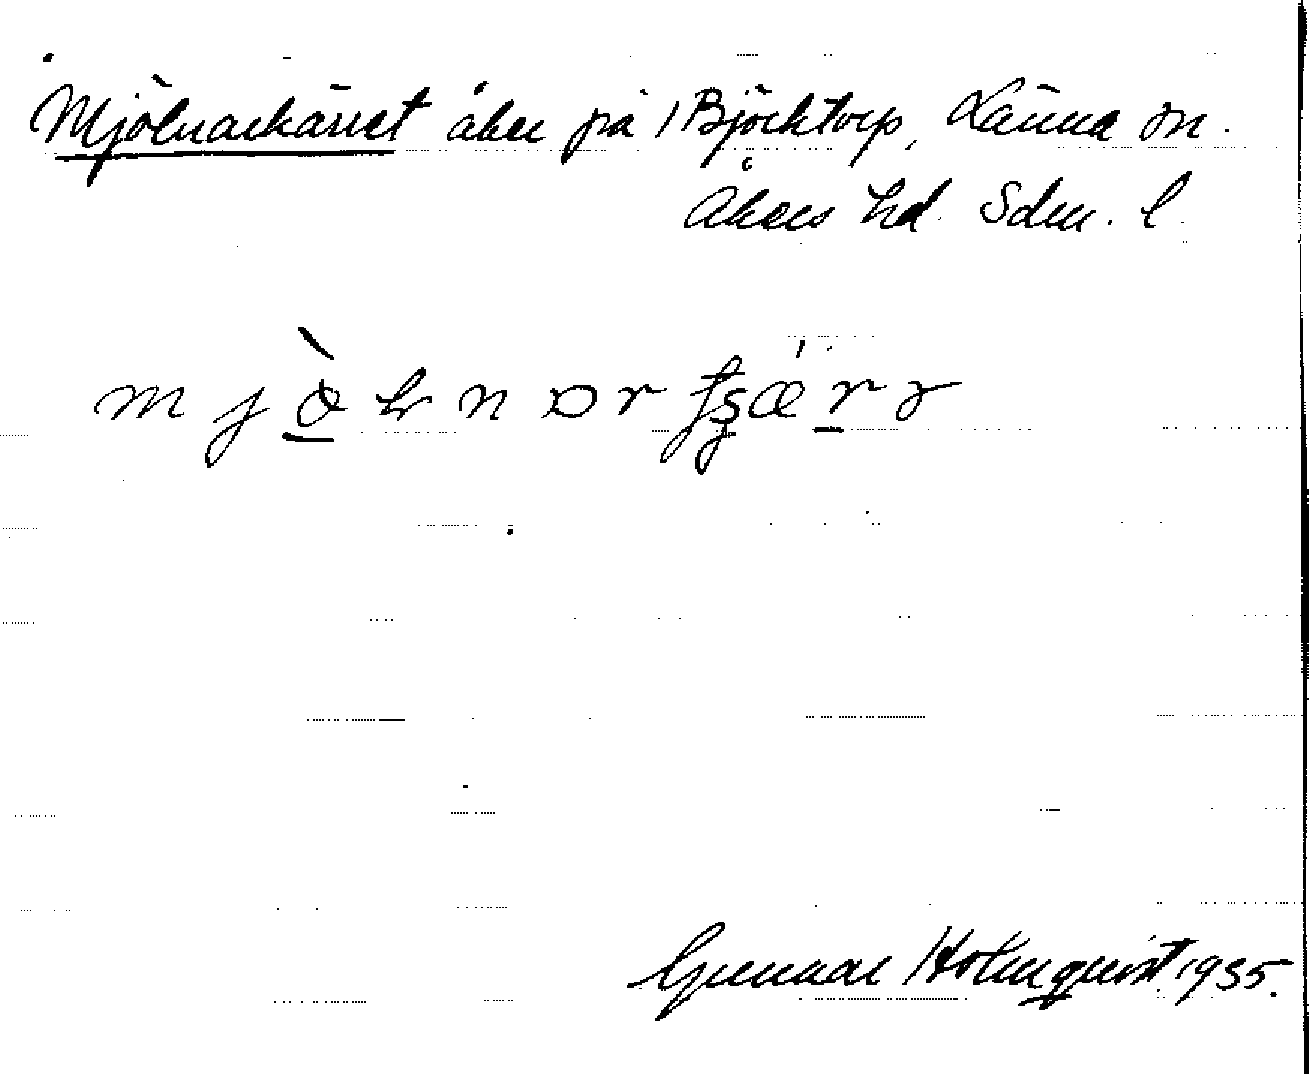 Mjölnarkärret åker på Björktorp, Länna sn.
Åkers hd. Sdm. l.
Gunnar Holmquist 1935.